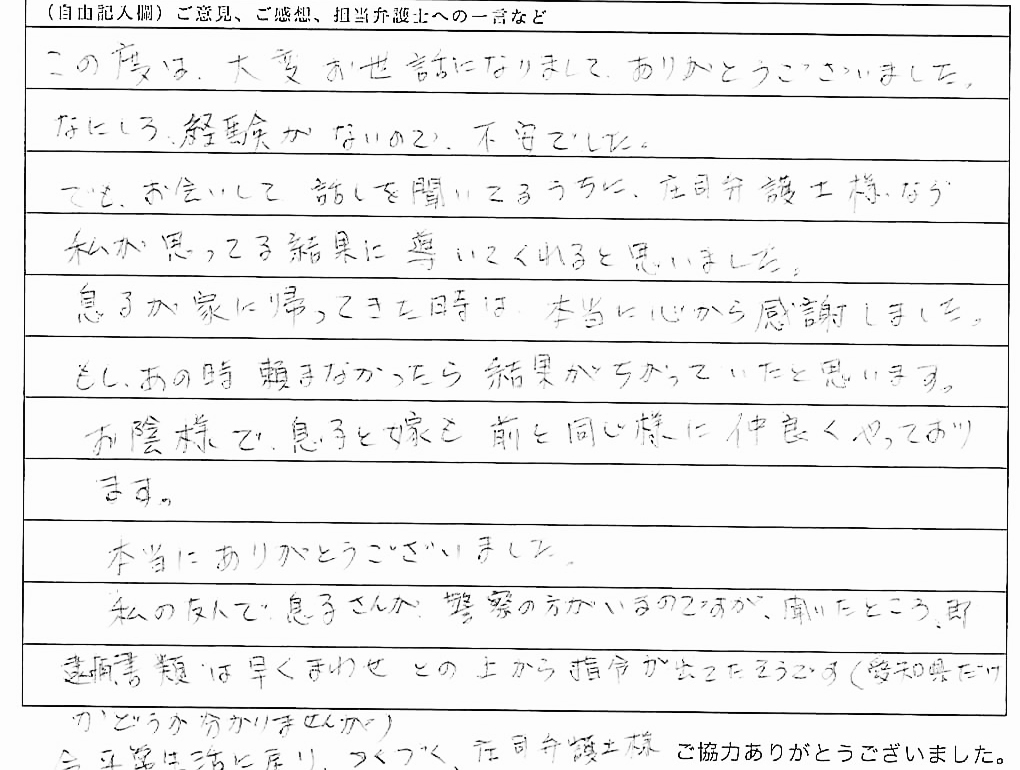 (自由記入欄)ご意見、ご感想、担当弁護士への一言など
この度は、大変お世話になりまして、ありがとうございました。
なにしろ、経験がないので、不安でした。
でも、お会いして 話しを聞いてるうちに、庄司弁護士様なら
私が思ってる結果に導いてくれると思いました。
息子が家に帰ってきた時は、本当に心から感謝しました。
もし、あの時頼まなかったら結果がちがっていたと思います。
お陰様で、息子と嫁も前と同じ様に仲良くやっており
ます。
本当にありがとうございました。
私の友人で、息子さんが、警察の方がいるのですが、聞いたところ、即
書類は早くまわせとの上から指令が出てたそうです(愛知県だけ
かどうか分かりませんが)
今平常生活に戻り、つくづく、庄司弁護士様
ご協力ありがとうございました。